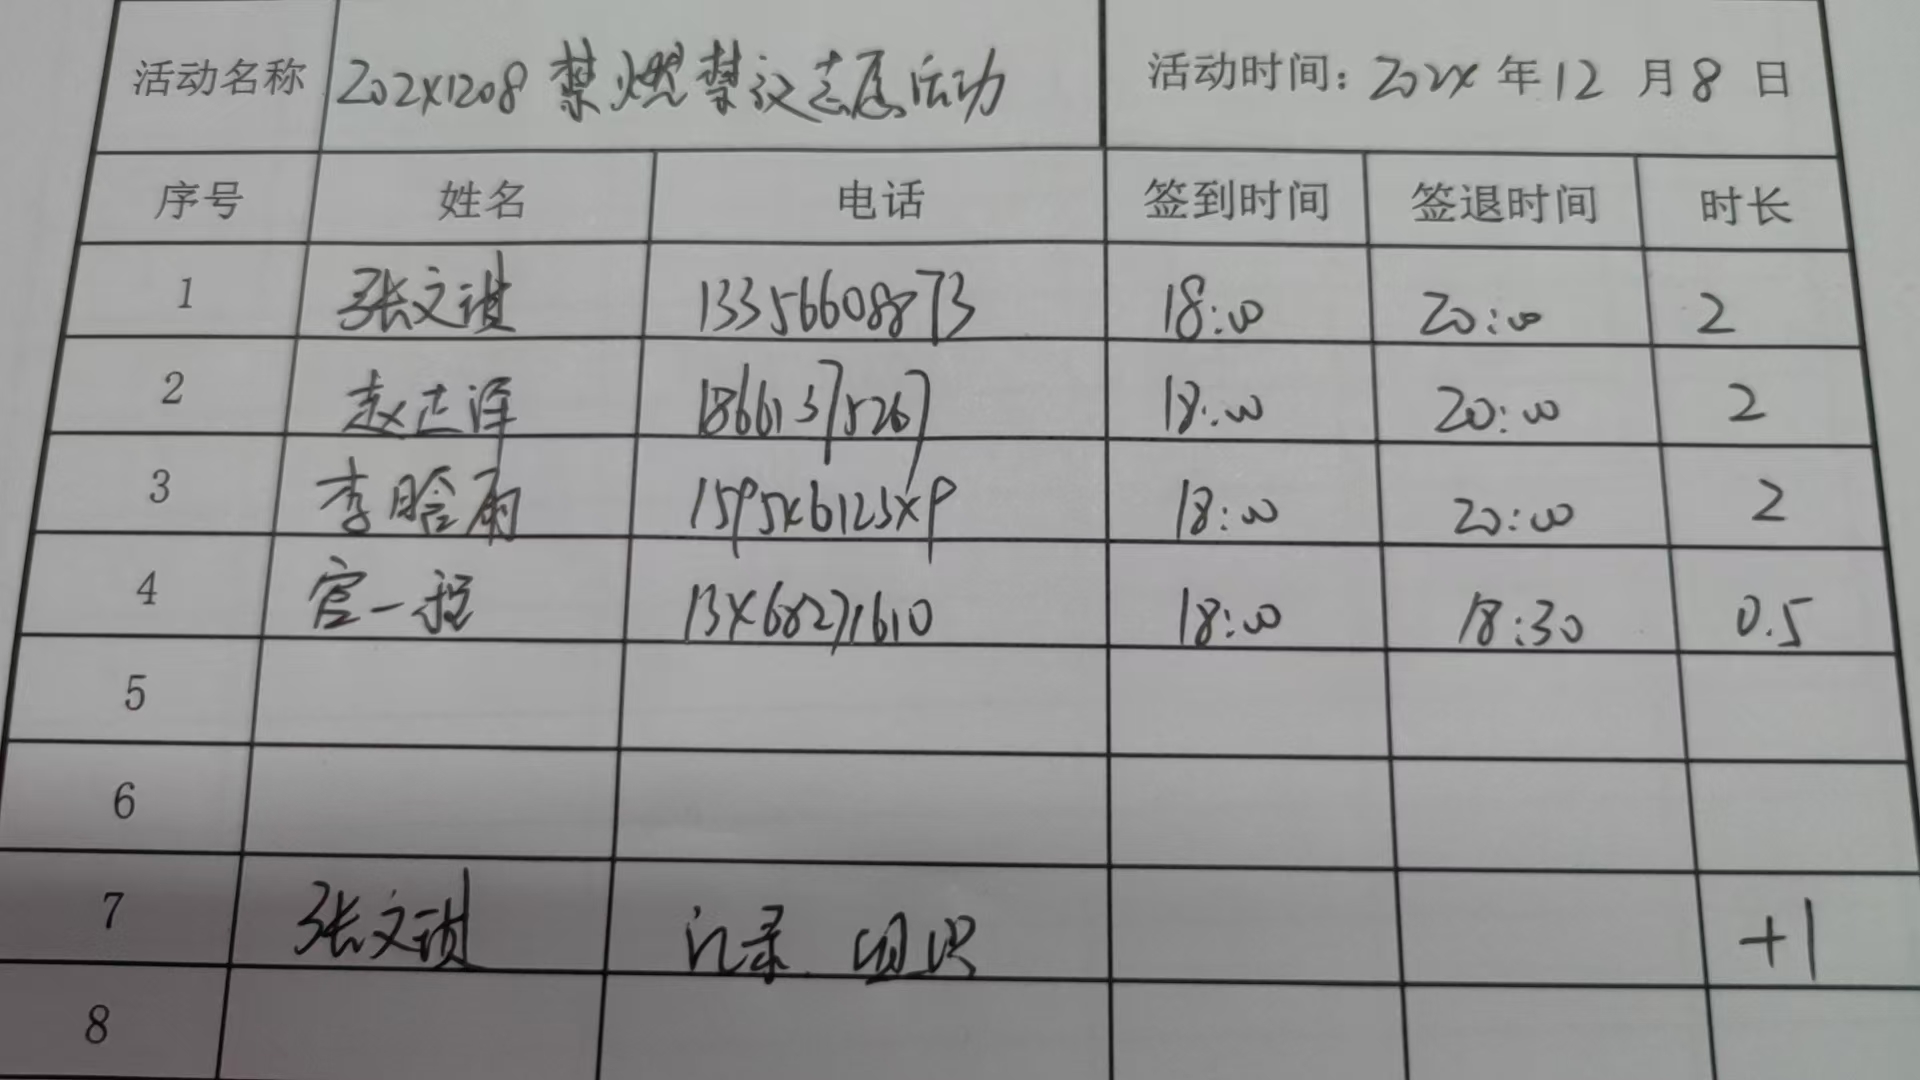 活动名称 20241208 禁燃禁放志愿活动 活动时间：2024年12月8日
序号 姓名 电话 签到时间 签退时间 时长
1 张文琪 13356608873 18:00 20:00 2
2 赵志泽 18661375267 18:00 20:00 2
3 李晗雨 18:00 20:00 2
4 官一程 13468271610 18:00 18:30 0.5
5
6
7 张文琪 记录 组织 +1
8